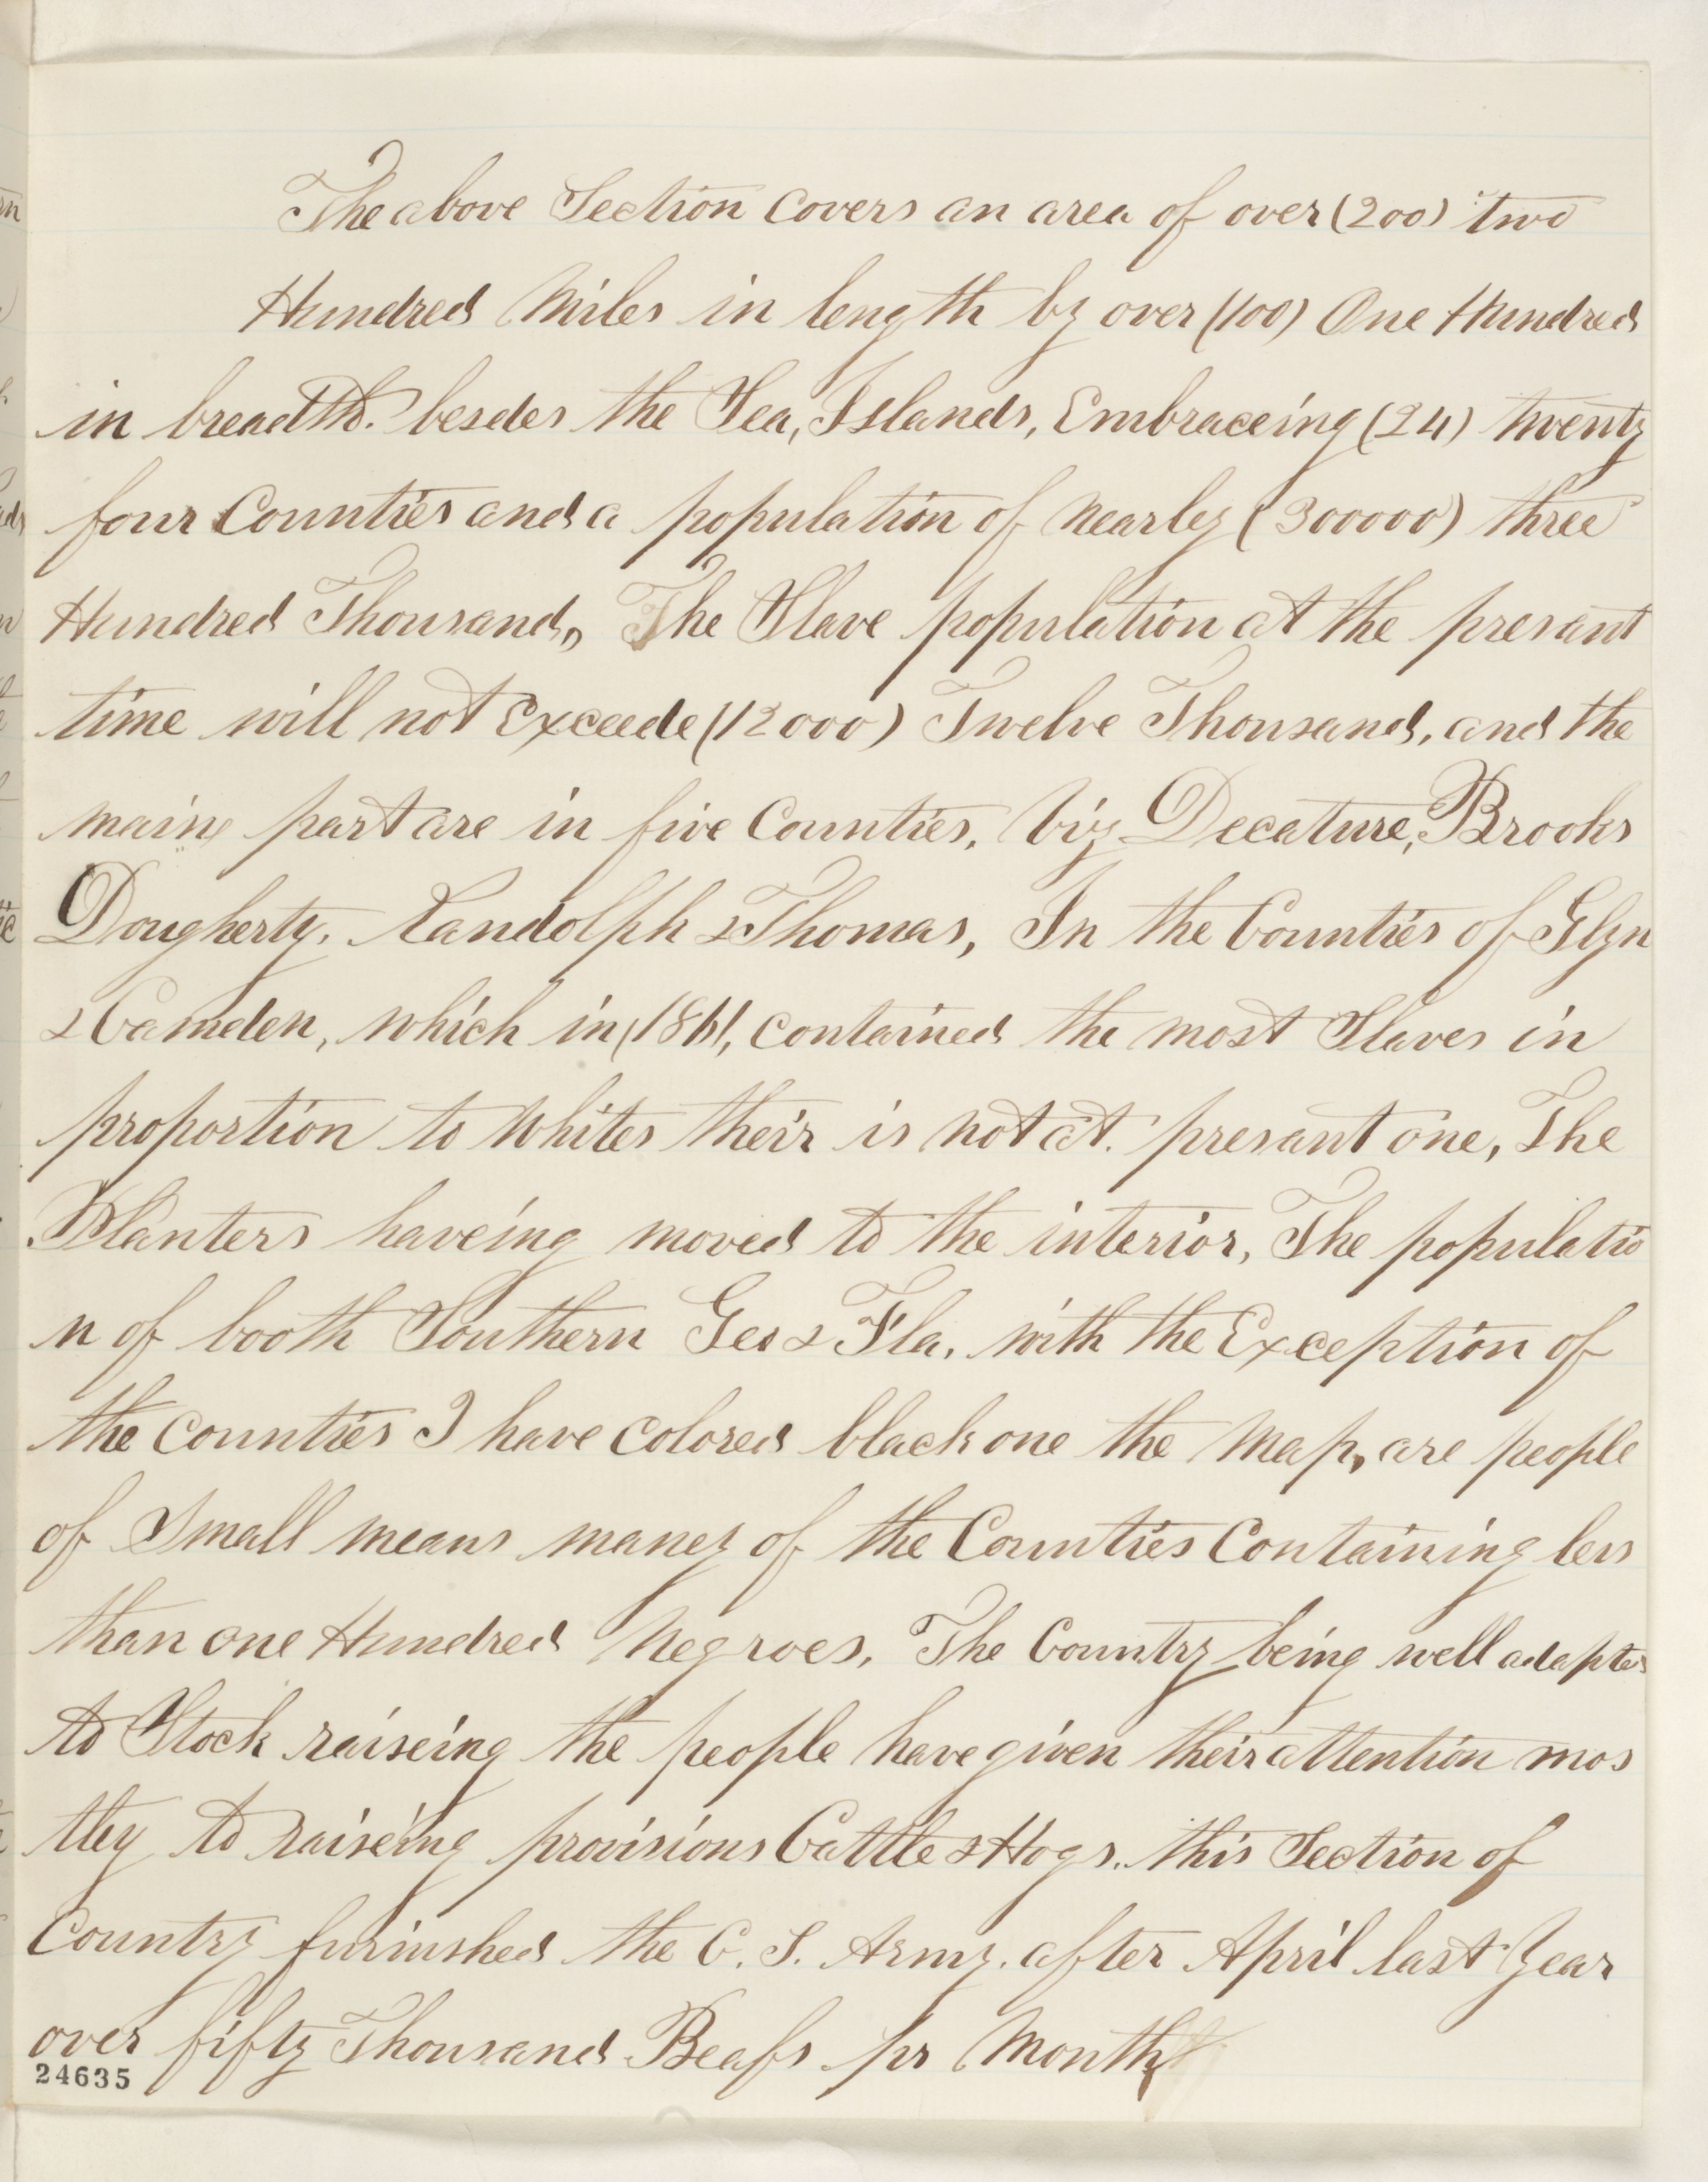 The above Section Covers an area of over (200) two
Hundred Miles in length by over (100) One Hundred
in breadth. besedes the Sea, Islands, Embraceing (24) twenty
four Counties and a population of nearley (300000) three
Hundred Thousand,, The Slave population at the presant
time will not Exceede (12000) Twelve Thousand, and the
maine part are in five Counties, Viz Decature, Brooks
Dougherty, Randolph & Thomas, In the Counties of Glyn
& Camden, which in, 1861, contained the most Slaves in
proportion to Whites their is not at. presant one, The
Planters haveing moved to the interior, The populatio
n of booth Southern Geo & Fla. with the Exception of
the Counties I have Colored black one the Map, are people
of Small means maney of the Counties Containing less
than one Hundred Negroes, The Country being well adapted
to Stock raiseing the people have given their attention mos
tley to raiseing provisions Cattle & Hogs.. this Section of
Country furinshed the C. S. Army. after April last Year
over fifty Thousand Beafs pr Month
24635